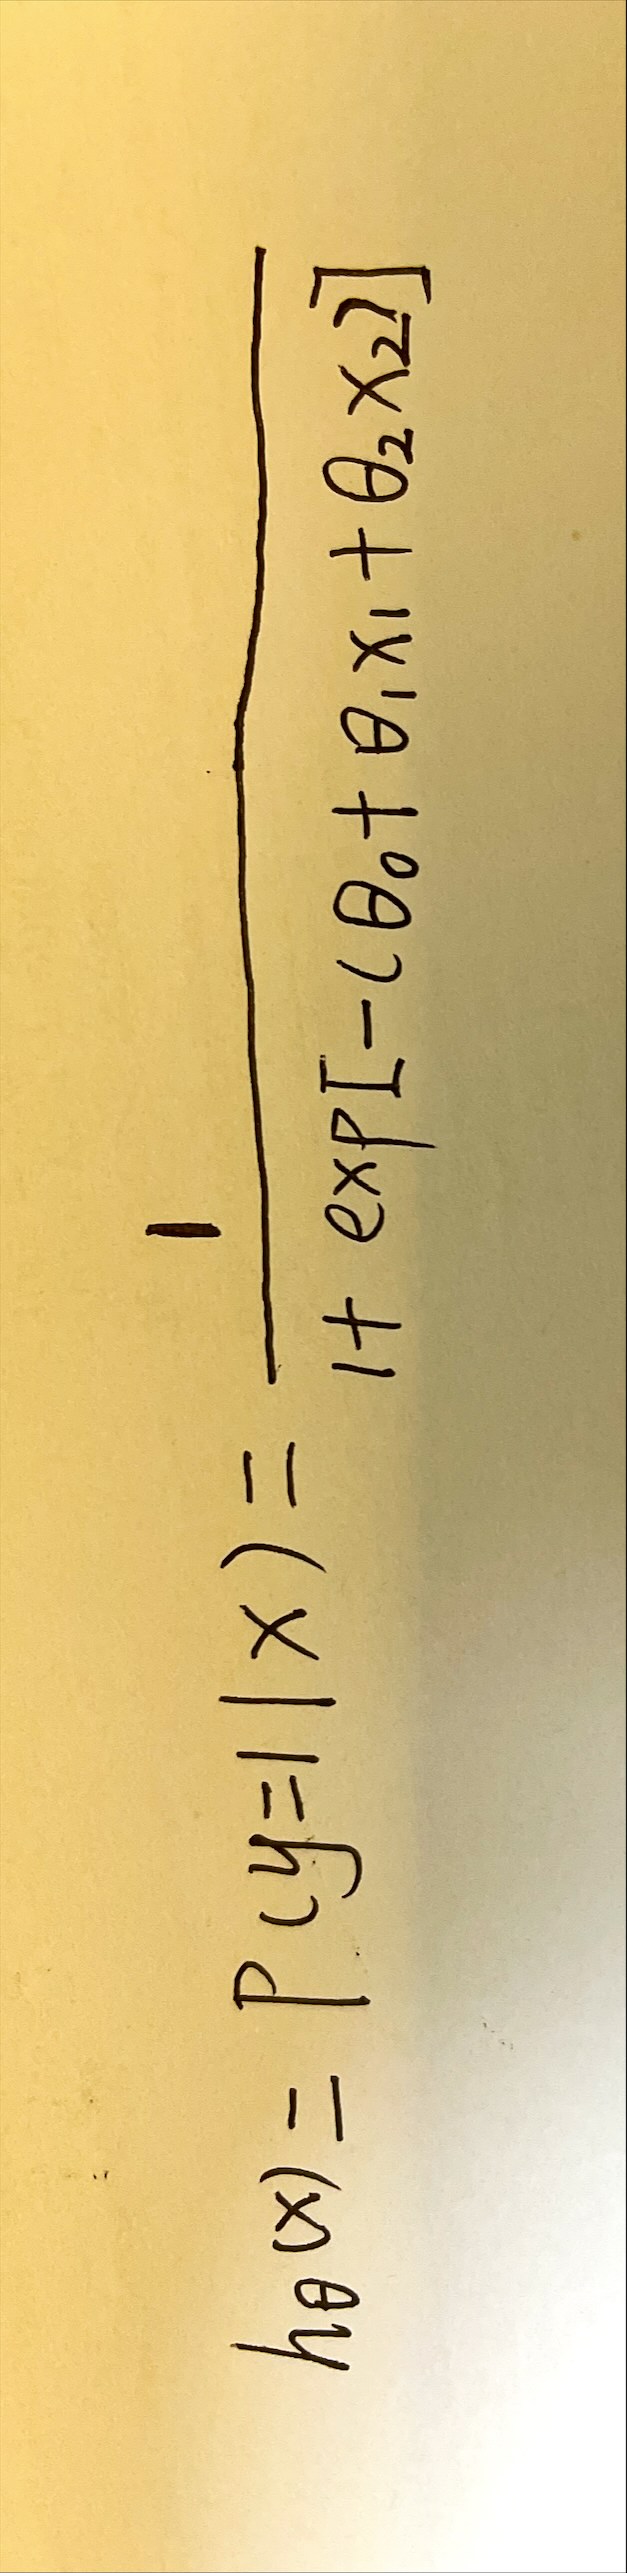 hθ(x) = P(y=1|x) = 1 / 1+ exp[-(θ₀+ θ₁x₁ + θ₂x₂)]